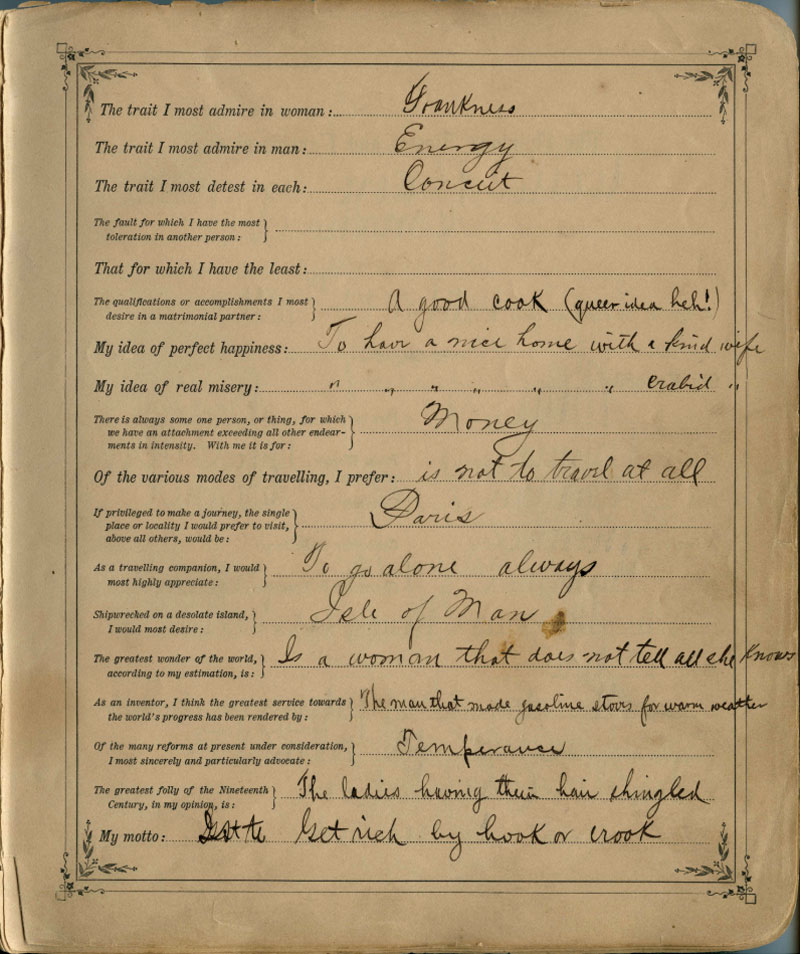 The trait I most admire in woman: Frankness
The trait I most admire in man: Energy
The trait I most detest in each: Conceit
The fault for which I have the most
toleration in another person:
That for which I have the least:
The qualifications or accomplishments I most
desire in a matrimonial partner: A good cook (queer idea heh!)
My idea of perfect happiness: To have a nice home with a kind wife
My idea of real misery: " " " " " " crabid "
There is always some one person, or thing, for which
we have an attachment exceeding all other endear-
ments in intensity. With me it is for: Money
Of the various modes of travelling, I prefer: is not to travel at all
If privileged to make a journey, the single
place or locality I would prefer to visit,
above all others, would be: Paris
As a travelling companion, I would
most highly appreciate: To go alone always
Shipwrecked on a desolate island,
I would most desire: Isle of Man
The greatest wonder of the world,
according to my estimation, is: Is a woman that does not tell all she knows
As an inventor, I think the greatest service towards
the world's progress has been rendered by: The man that made gasoline stoves for warm weather
Of the many reforms at present under consideration,
I most sincerely and particularly advocate: Temperance
The greatest folly of the Nineteenth
Century, in my opinion, is: The ladies having their hair shingled
My motto: Get rich by hook or crook